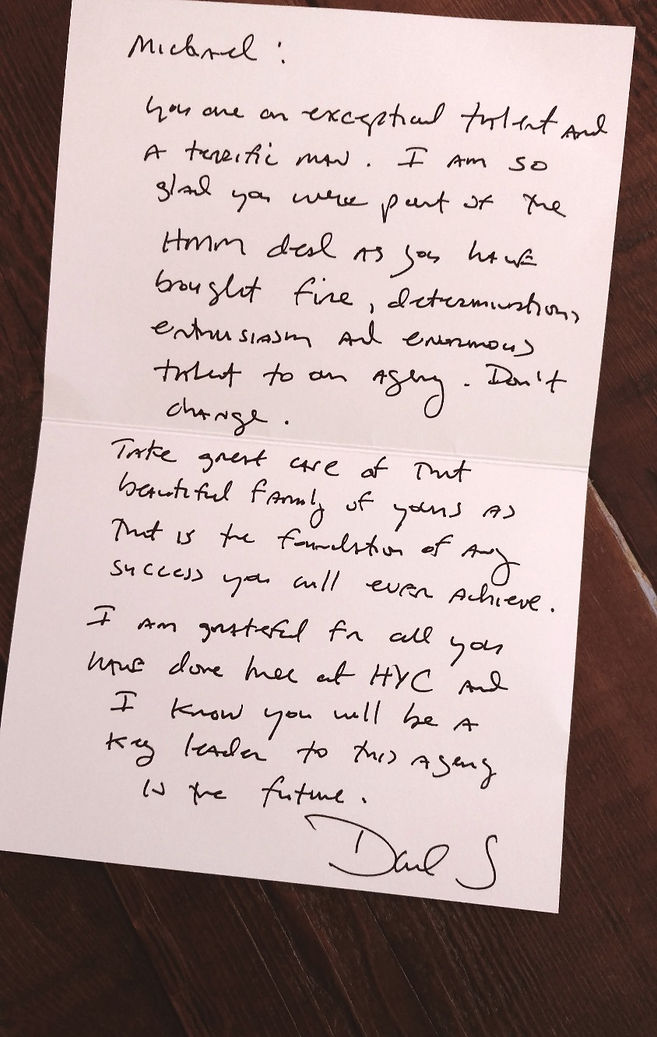 Michael :
You are an exceptional talent and
a terrific man. I am so
glad you were part of the
HMM deal as you have
bought fire, determination,
enthusiasm and enormous
talent to an agency. Don't
change.
Take great care of that
beautiful family of yours as
that is the foundation of any
success you will ever achieve.
I am grateful for all you
have done here at HYC and
I know you will be a
key leader to this agency
is the future.
S